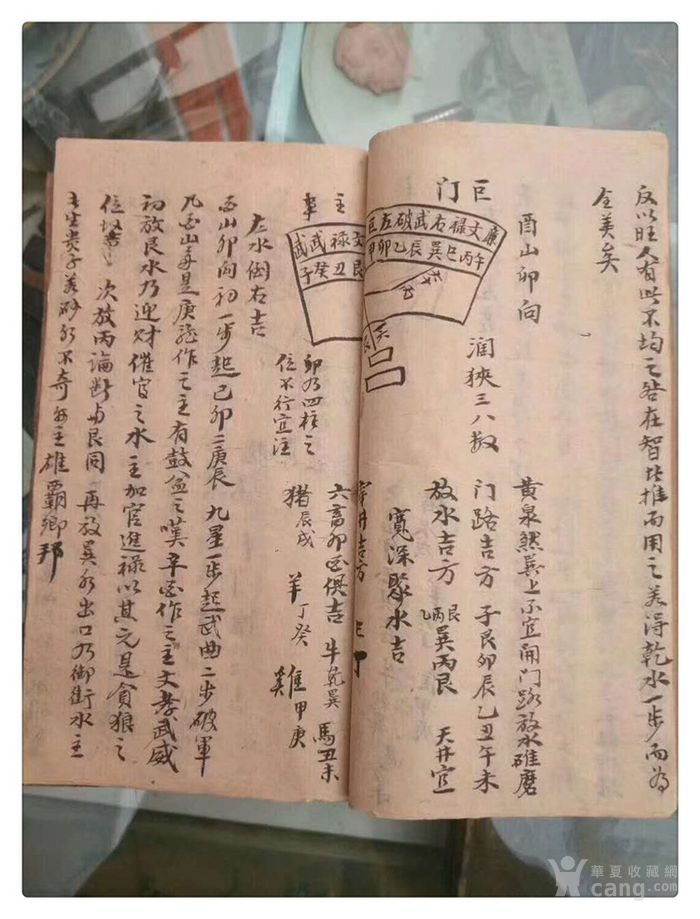 反以旺人有些不均之咎在智者推而用之若得乾水一步而為
全美矣
巨门
酉山卯向
廉文禄右武破左巨
午丙巳巽辰乙卯甲
润狭三八数
黄泉然巽上不宜開门路放水碓磨
门路吉方 子艮卯辰乙丑午未
放水吉方 乙丙艮 巽丙艮 天井宜
寬深聚水吉
穿井吉方
主事
文禄武武
艮丑癸子
卯为四柱之
位不行宜注
六畜卯酉俱吉 牛乾巽 馬丑未
猪辰戌 羊丁癸 雞甲庚
左水倒右吉
酉山卯向初一步起己卯二庚辰 九星一步起武曲二步破軍
凡酉山每是庚龍作之主有鼓盆之嘆辛酉作之主文孝武威
初放艮水乃迎财催官之水主加官進禄以其艽是貪狼之
位 次放丙論断与艮同 再放巽水出口乃御街水主
生贵子若砂水不奇每主雄霸鄉邦
華夏收藏網
cang.com